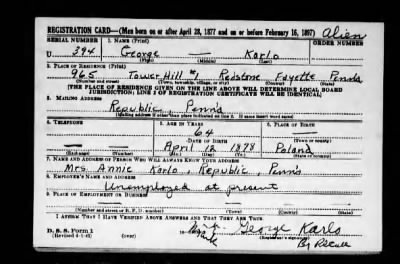 REGISTRATION CARD—(Men born on or after April 28, 1877 and on or before February 16, 1897) Alien
SERIAL NUMBER 1. NAME (Print) ORDER NUMBER
U 394 George — Karlo
(First) (Middle) (Last)
2. PLACE OF RESIDENCE (Print)
965 Tower Hill #1 Redstone Fayette Penna
(Number and street) (Town, township, village, or city) (County) (State)
[THE PLACE OF RESIDENCE GIVEN ON THE LINE ABOVE WILL DETERMINE LOCAL BOARD
JURISDICTION; LINE 2 OF REGISTRATION CERTIFICATE WILL BE IDENTICAL]
3. MAILING ADDRESS
Republic, Penna
[Mailing address if other than place indicated on line 2. If same insert word same]
4. TELEPHONE 5. AGE IN YEARS 6. PLACE OF BIRTH
— 64 —
DATE OF BIRTH (Town or county)
— April 18 1878 Poland
(Exchange) (Number) (Mo.) (Day) (Yr.) (State or country)
7. NAME AND ADDRESS OF PERSON WHO WILL ALWAYS KNOW YOUR ADDRESS
Mrs. Annie Karlo, Republic, Penna
8. EMPLOYER'S NAME AND ADDRESS
Unemployed at present
9. PLACE OF EMPLOYMENT OR BUSINESS
— — —
(Number and street or R. F. D. number) (Town) (County) (State)
I AFFIRM THAT I HAVE VERIFIED ABOVE ANSWERS AND THAT THEY ARE TRUE.
D. S. S. Form 1
(Revised 4-1-42) George Karlo